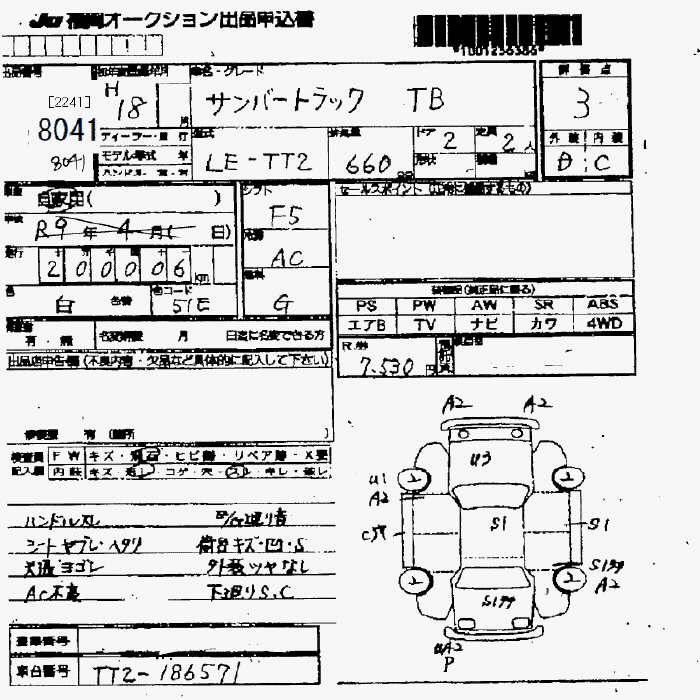 JU 福岡オークション出品申込書
*1001256386*
出品番号
車名・グレード
評価点
[2241]
8041
8041
H
18 月
サンバートラック TB
3
ディーラー・並行
型式
排気量
ドア
2
定員
2 人
外装 内装
モデル年式 年
LE-TT2
660 cc
形状
D C
自家用( )
シフト
F5
セールスポイント
車検
R9 年 4 月( 日)
冷房
AC
走行
200006 km
燃料
G
色
白
色替
色コード
51E
PS PW AW SR ABS
エアB TV ナビ カワ 4WD
有・無
名変期限 月 日迄に名変できる方
R券
7.530 円
出品店申告欄(不具合箇所・欠品など具体的に記入して下さい)
修復歴 有 (箇所
検査員
記入欄
FW キズ・飛石・ヒビ跡・リペア跡・X要
ハンドルスレ
シートヤブレ・ヘタリ
荷台キズ・凹・S
天張ヨゴレ
外装ツヤなし
AC不良
下廻りS.C
A2 A2
U3
U1
A2
2 2
S1
S1
C穴
2 2
A2
P
登録番号
車台番号
TT2-186571